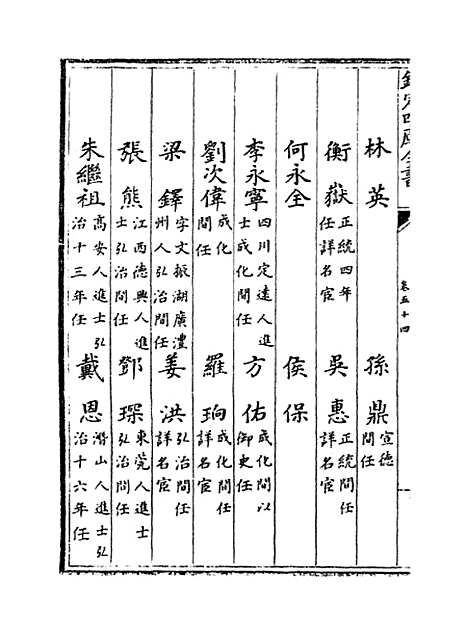 欽定四庫全書
卷五十四
林英　孫鼎宣德間任
衡嶽正統四年任詳名宦　吳惠正統間任詳名宦
何永全　侯保
李永寧四川定遠人進士成化間任　方佑成化間以御史任
劉次偉成化間任　羅珦成化間任詳名宦
梁鐸字文振湖廣澧州人弘治間任　姜洪弘治間任詳名宦
張熊江西德興人進士弘治間任　鄧琛東莞人進士弘治間任
朱繼祖高安人進士弘治十三年任　戴恩潛山人進士弘治十六年任